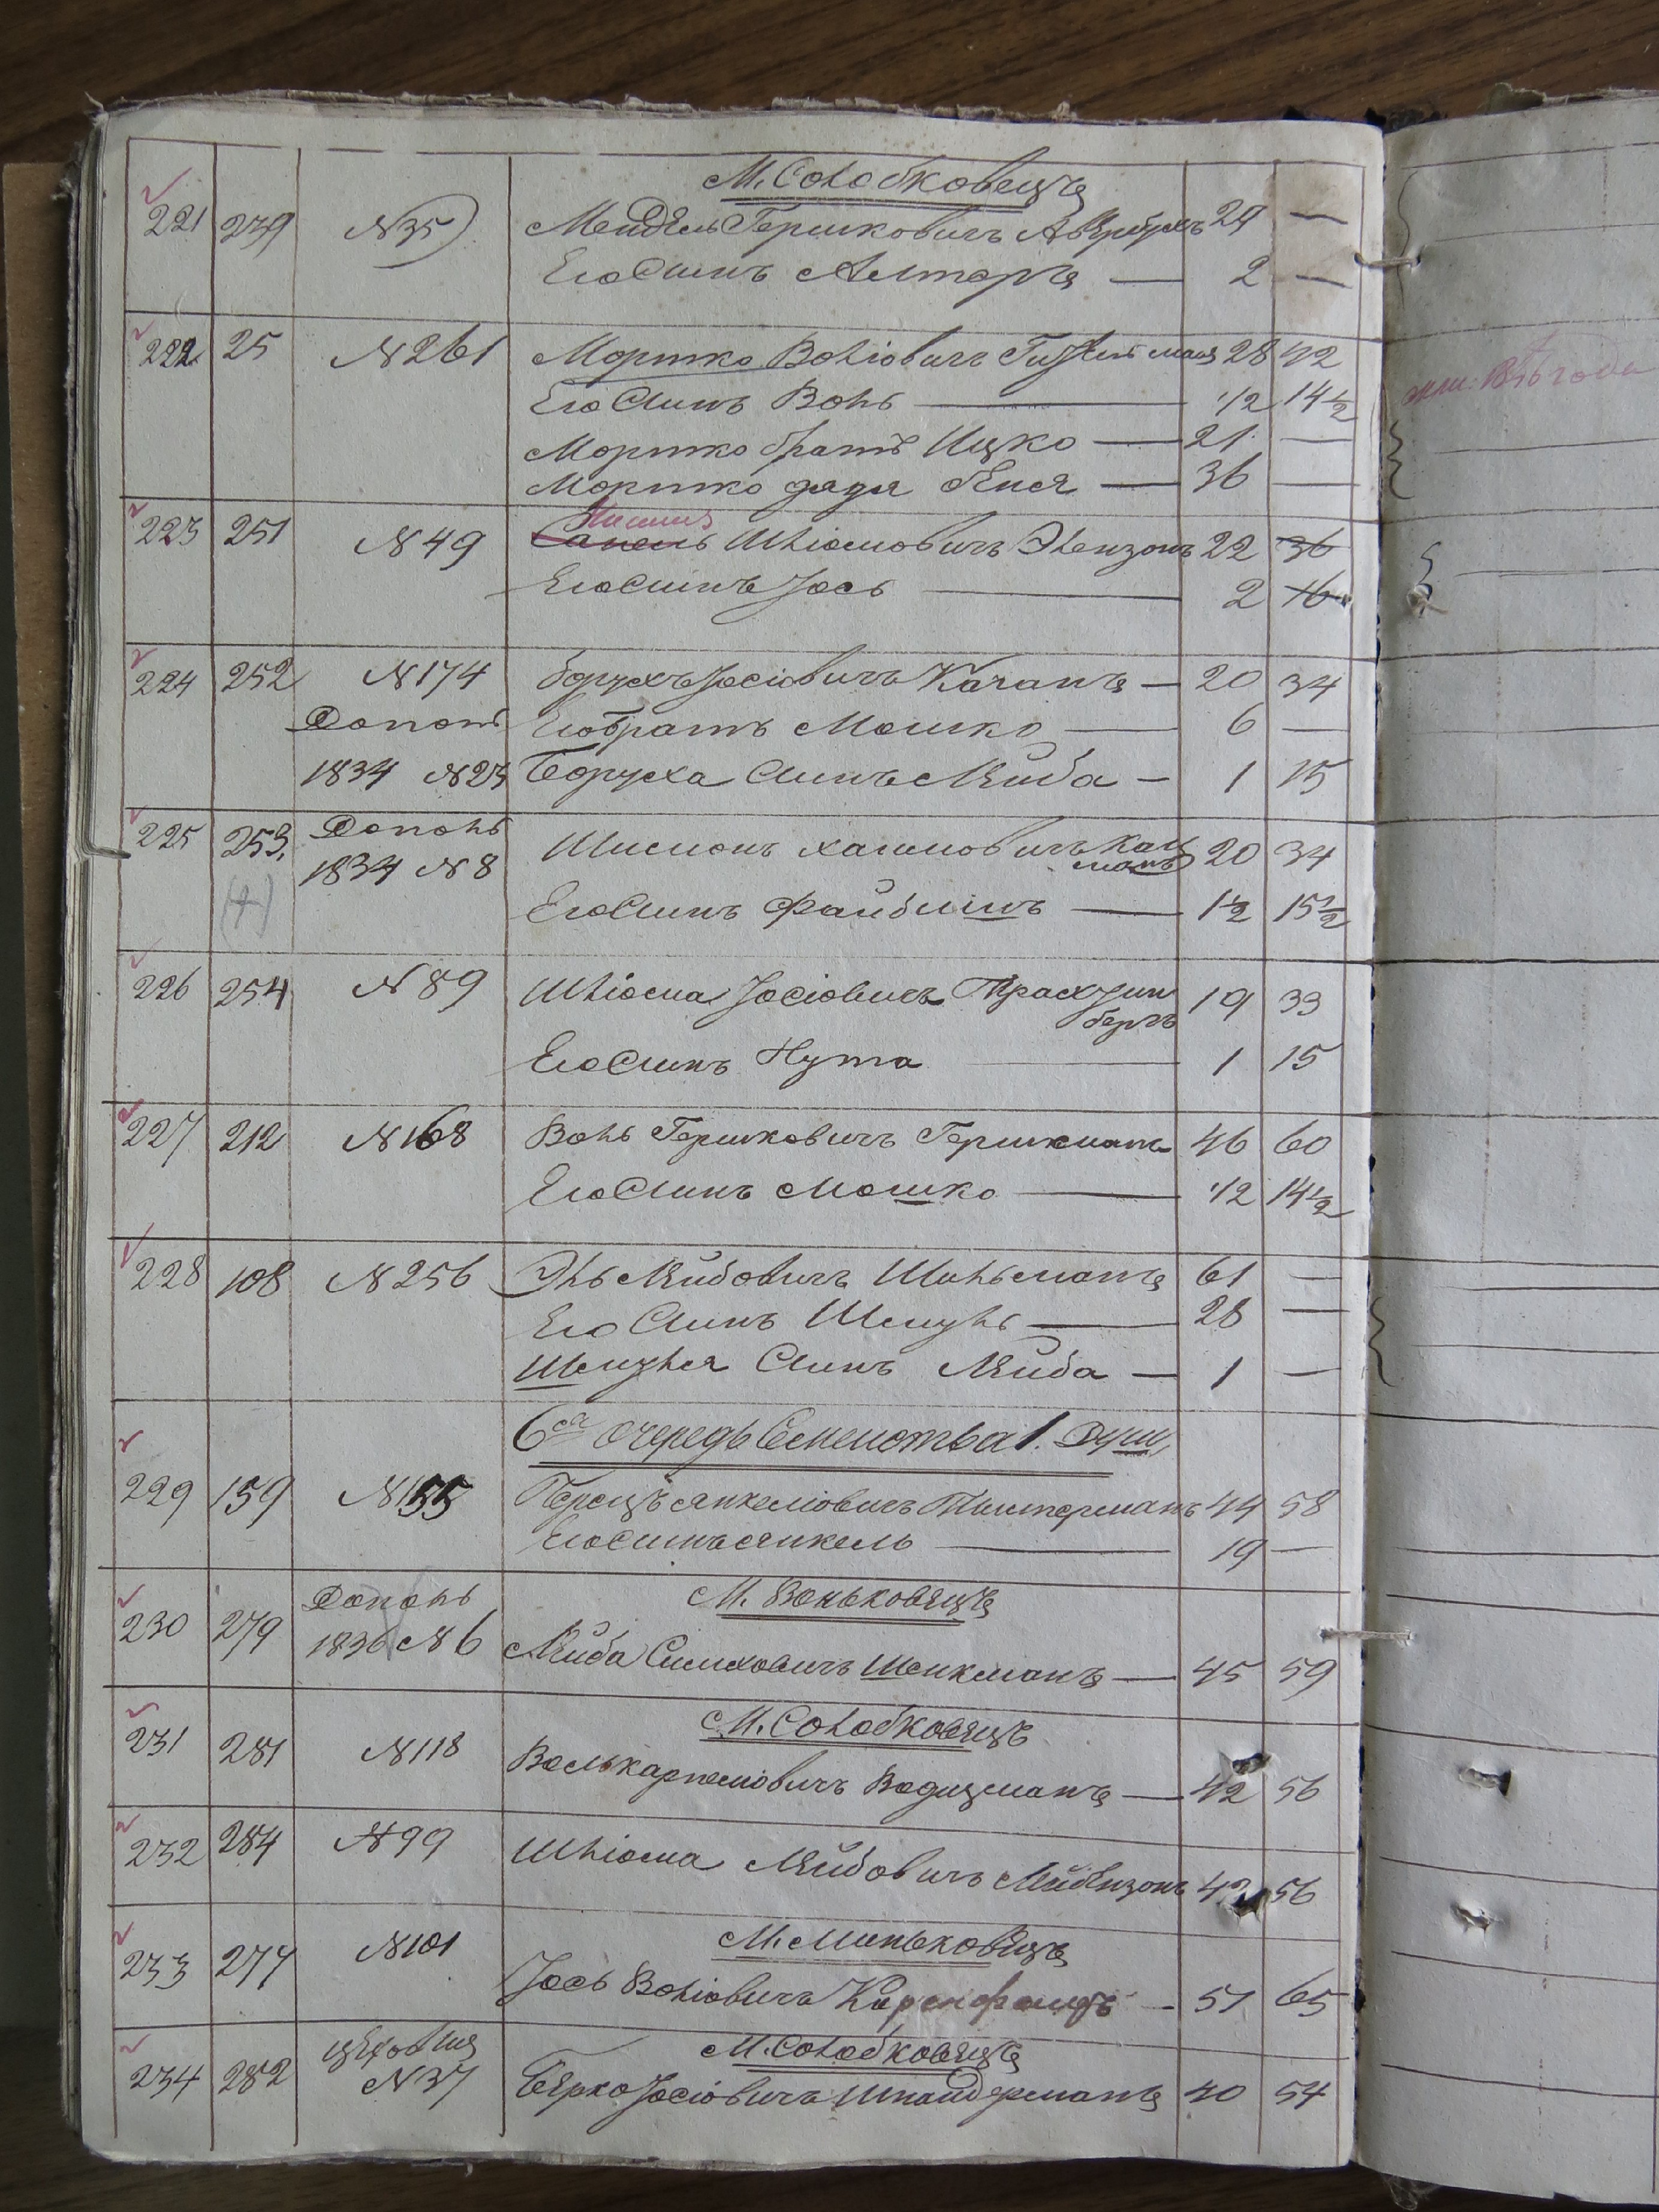 М. Солобковецъ
221 249 №35 Мендель Гершковичъ Авербухъ 29 —
Его Сынъ Алтеръ — 2 —
222 25 №261 Мортко Волiовичъ 28 42
Его Сынъ Воль — 1/2 14 1/2
Мортко братъ Ицко — 21 —
Мортко дядя Беня — 36 —
223 251 №49 Шлiомовичъ Элензонъ 22 36
Его Сынъ Iось — 2 16
224 252 №174 Борухъ Iосiовичъ Качанъ — 20 34
Дополъ Его братъ Мошко — 6 —
1834 №23 Боруха Сынъ Лейба — 1 15
225 253. Дополъ
1834 №8 Шимонъ Хаимовичъ Кац
манъ 20 34
(+)
Его Сынъ Файбишъ — 1 1/2 15 1/2
226 254 №89 Шлiома Iосiовичъ Трахтин
бергъ 19 33
Его Сынъ Нута — 1 15
227 212 №168 Воль Гершковичъ Гершманъ 46 60
Его Сынъ Мошко — 1/2 14 1/2
228 108 №256 Эль Лейбовичъ Шильманъ 61 —
Его Сынъ Шмуль — 28 —
Шмуля Сынъ Лейба — 1 —
6ая очередь Семейства 1. Души
229 159 №155 Герецъ Янкелiовичъ Тимтерманъ 44 58
Его Сынъ Янкель — 19 —
Дополъ М. Воньковецъ
230 279 1836 №6 Лейба Симховичъ Шенкманъ — 45 59
М. Солобковецъ
231 281 №118 Водицманъ — 42 56
232 284 №99 Шлiома Лейбовичъ Лейбензонъ 42 56
М. Миньковецъ
233 277 №101 Iось Волiовичъ Каренфельдъ — 51 65
М. Солобковецъ
234 282 №37 Берко Iосiовичъ Шпайдерманъ 40 54